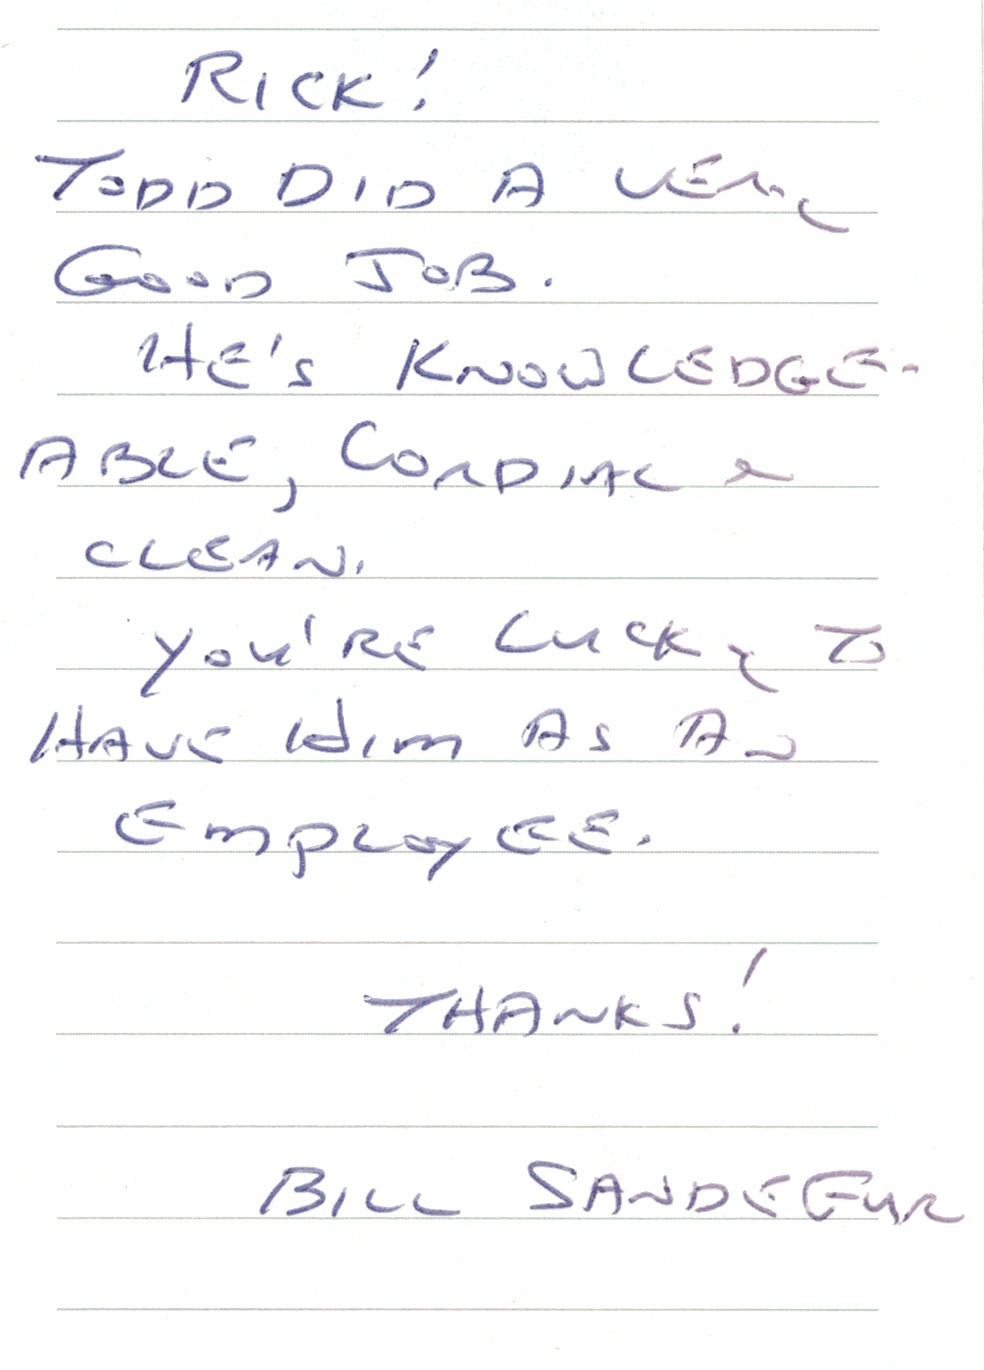 RICK!
TODD DID A VERY
GOOD JOB.
HE'S KNOWLEDGE-
ABLE, CORDIAL &
CLEAN.
YOU'RE LUCKY TO
HAVE HIM AS AN
EMPLOYEE.
THANKS!
BILL SANDEFUR